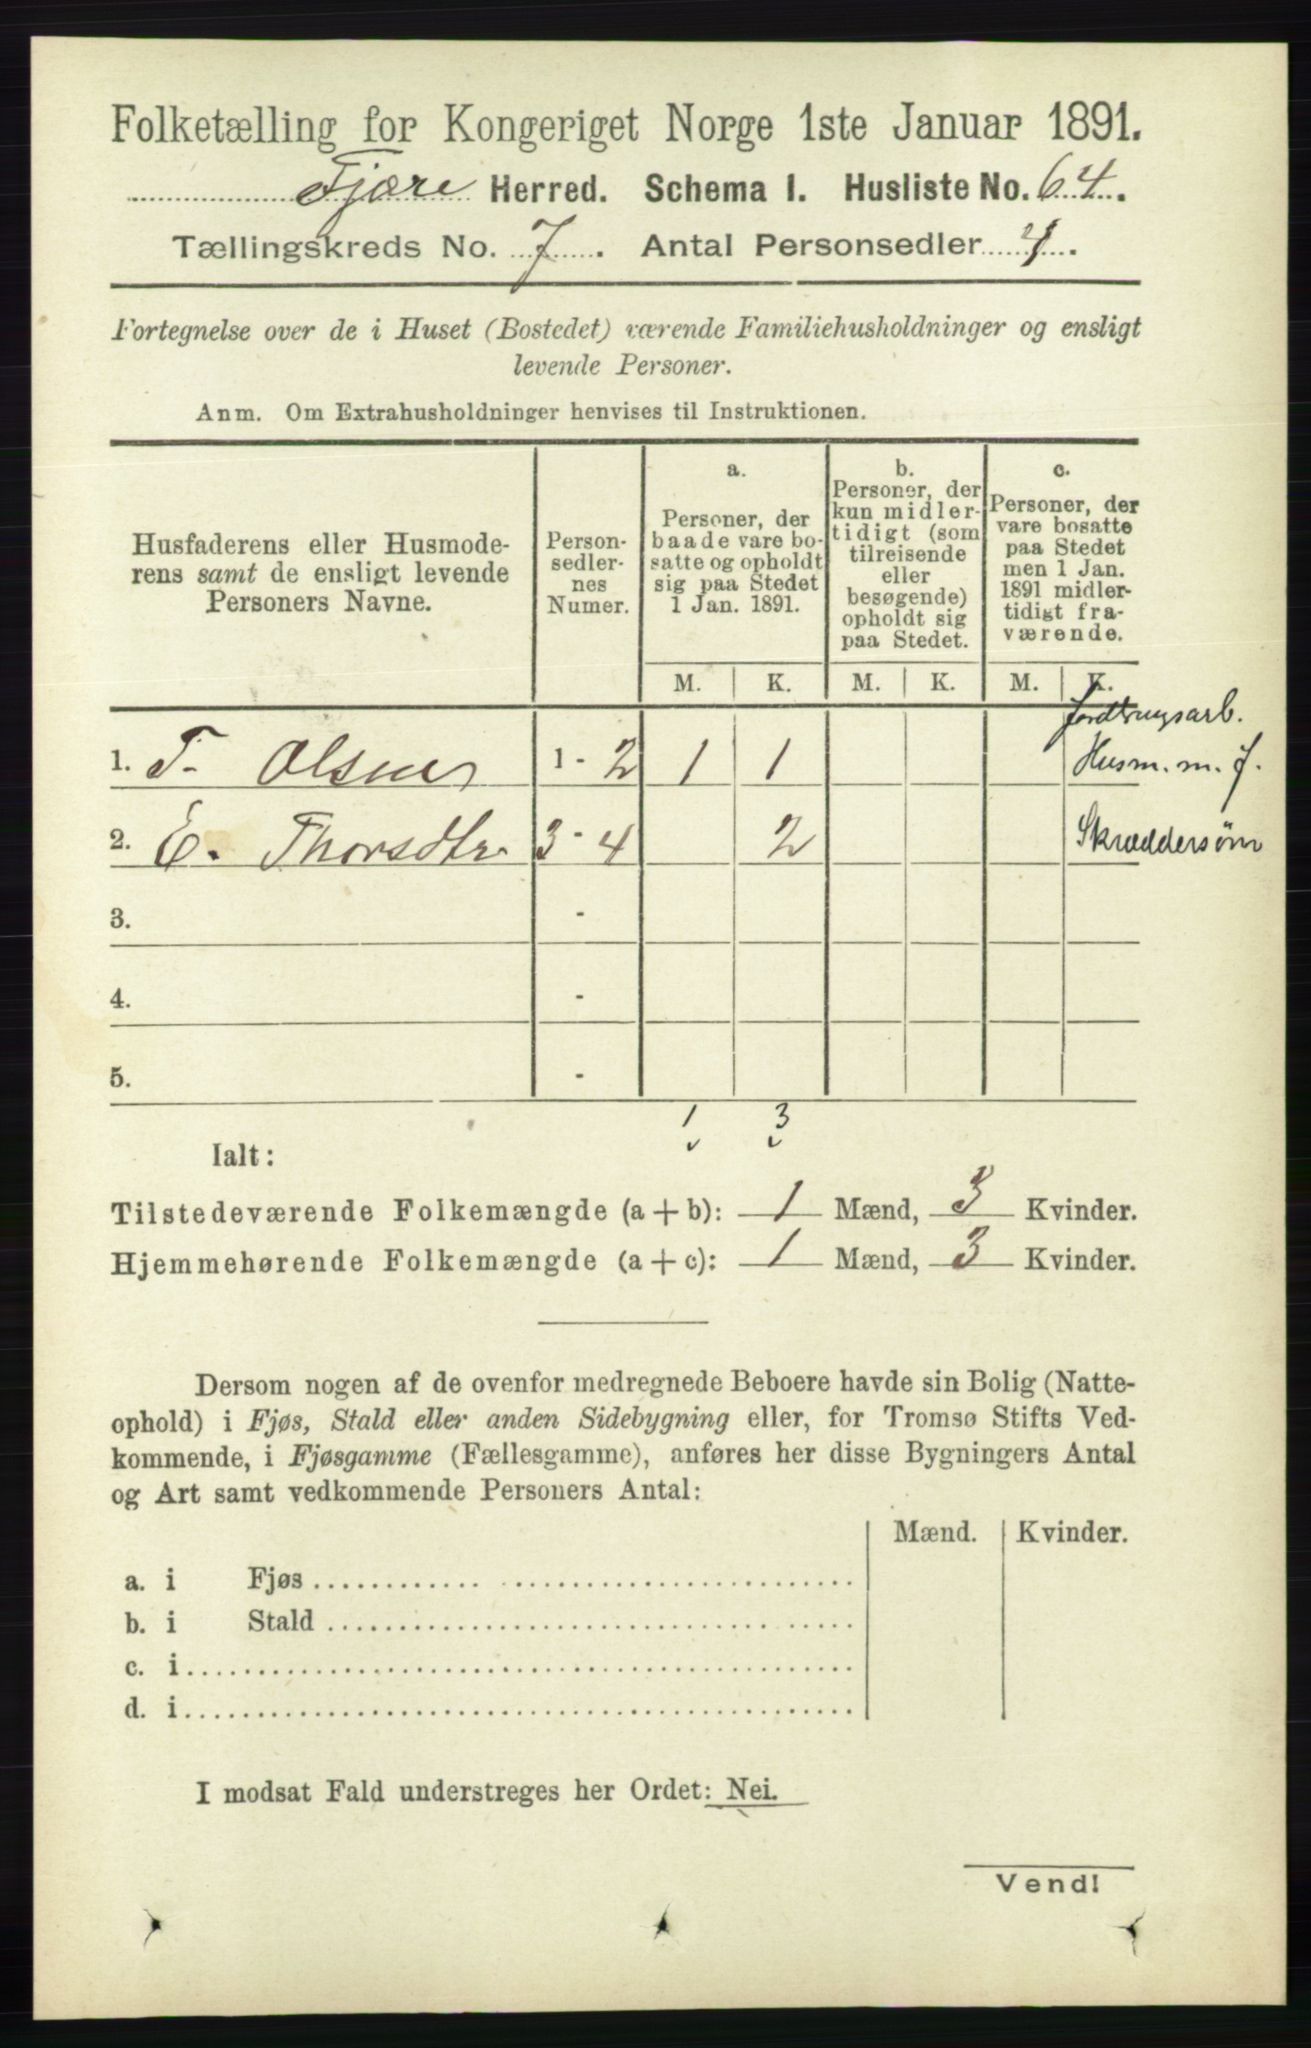 Folketælling for Kongeriget Norge 1ste Januar 1891.
Fjære Herred. Schema I. Husliste No. 64.
Tællingskreds No. 7. Antal Personsedler 4.
Fortegnelse over de i Huset (Bostedet) værende Familiehusholdninger og ensligt
levende Personer.
Anm. Om Extrahusholdninger henvises til Instruktionen.
Husfaderens eller Husmode-
rens samt de ensligt levende
Personers Navne.
Person-
sedler-
nes
Numer.
a.
Personer, der
baade vare bo-
satte og opholdt
sig paa Stedet
1 Jan. 1891.
b.
Personer, der
kun midler-
tidigt (som
tilreisende
eller
besøgende)
opholdt sig
paa Stedet.
c.
Personer, der
vare bosatte
paa Stedet
men 1 Jan.
1891 midler-
tidigt fra-
værende.
M. K. M. K. M. K.
Husm. m. J.
1. T. Olsen 1 - 2 1 1
2. E. Thorsdtr 3 - 4 2 Skræddersøm
3. -
4. -
5. -
1 3
Ialt:
Tilstedeværende Folkemængde (a + b): 1 Mænd, 3 Kvinder.
Hjemmehørende Folkemængde (a + c): 1 Mænd, 3 Kvinder.
Dersom nogen af de ovenfor medregnede Beboere havde sin Bolig (Natte-
ophold) i Fjøs, Stald eller anden Sidebygning eller, for Tromsø Stifts Ved-
kommende, i Fjøsgamme (Fællesgamme), anføres her disse Bygningers Antal
og Art samt vedkommende Personers Antal:
Mænd. Kvinder.
a. i Fjøs
b. i Stald
c. i
d. i
I modsat Fald understreges her Ordet: Nei.
Vend!